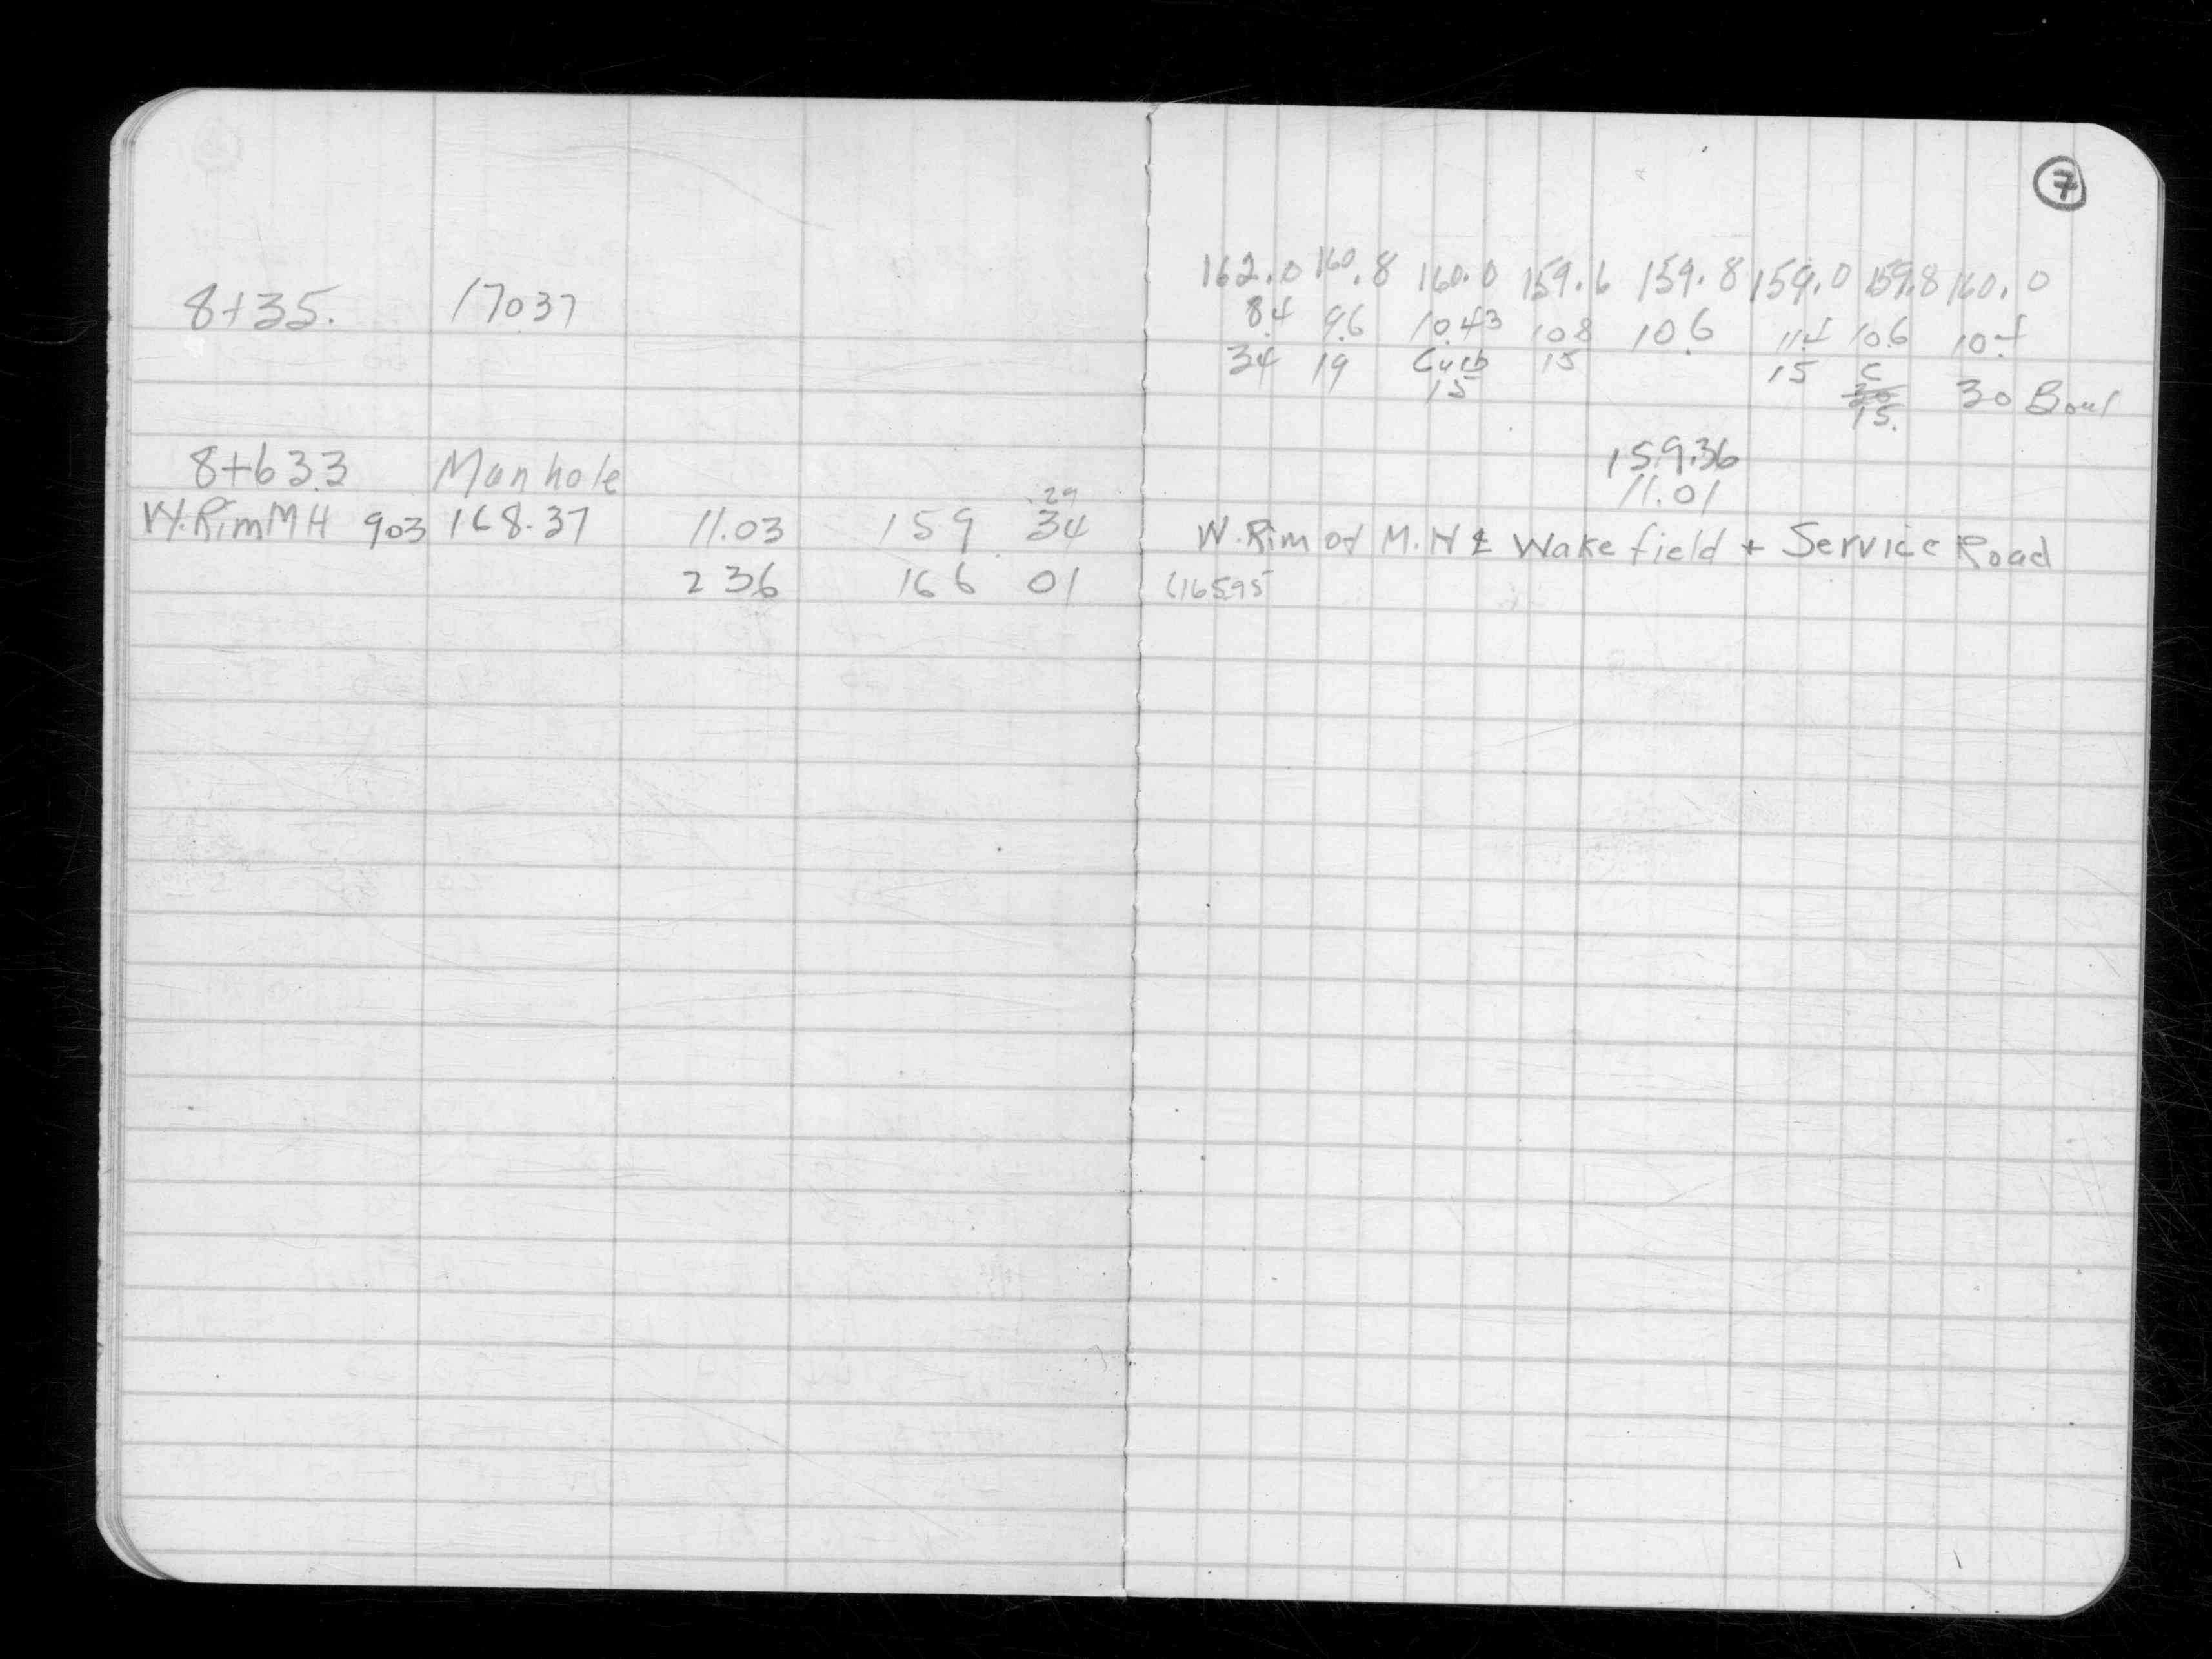 7
162.0 160.8 160.0 159.6 159.8 159.0 159.8 160.0
8+35. 170.37 8.4 9.6 10.43 10.8 10.6 11.4 10.6 10.4
34 19 Curb 15 15 C 30
15 15.
159.36
8+63.3 Manhole 11.01
.29
W.Rim MH 9.03 168.37 11.03 159.34 W.Rim of M.H ℄ Wakefield + Service Road
2.36 166 01 (165.95